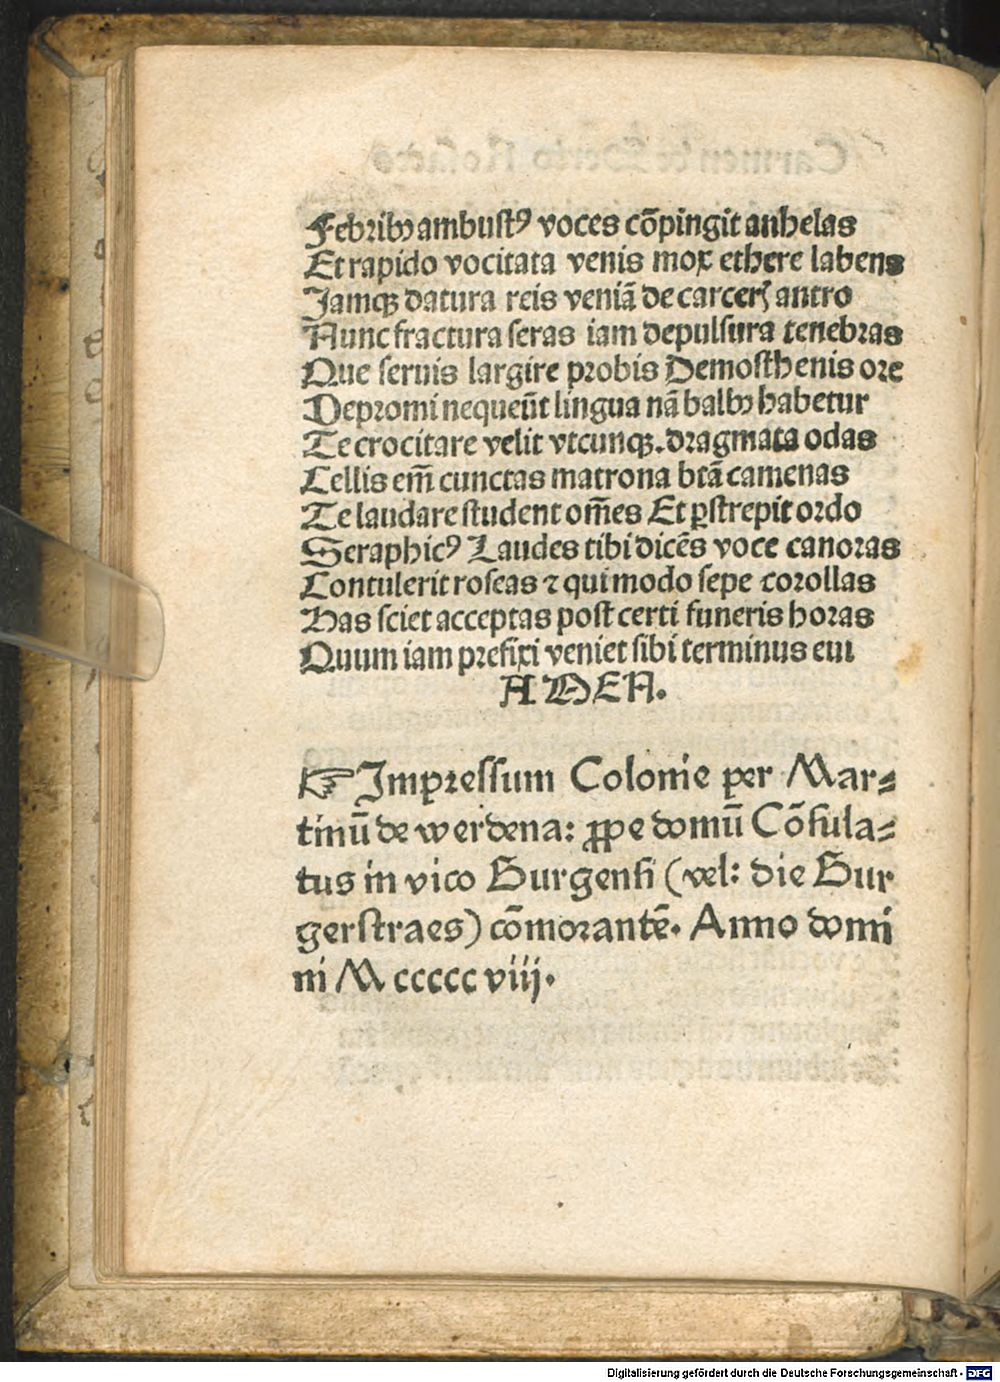 Febribꝫ ambustꝰ voces cōpingit anhelas
Et rapido vocitata venis mox ethere labens
Jamqꝫ datura reis veniā de carceꝝ antro
Nunc fractura seras iam depulsura tenebras
Que seruis largire probis Demosthenis ore
Depromi nequeūt lingua nā balbꝫ habetur
Te crocitare velit vtcunqꝫ. dragmata odas
Cellis em̄ cunctas matrona btā camenas
Te laudare student om̄es Et ꝑstrepit ordo
Seraphicꝰ Laudes tibi dicēs voce canoras
Contulerit roseas ⁊ qui modo sepe corollas
Has sciet acceptas post certi funeris horas
Quum iam prefixi veniet sibi terminus eui
AMEN.
☞ Impressum Colonie per Mar⸗
tinū de werdena: ꝓpe domū Cōsula⸗
tus in vico Burgensi (vel: die Bur
gerstraes) cōmorantē. Anno domi
ni M ccccc viij.
Digitalisierung gefördert durch die Deutsche Forschungsgemeinschaft - DFG